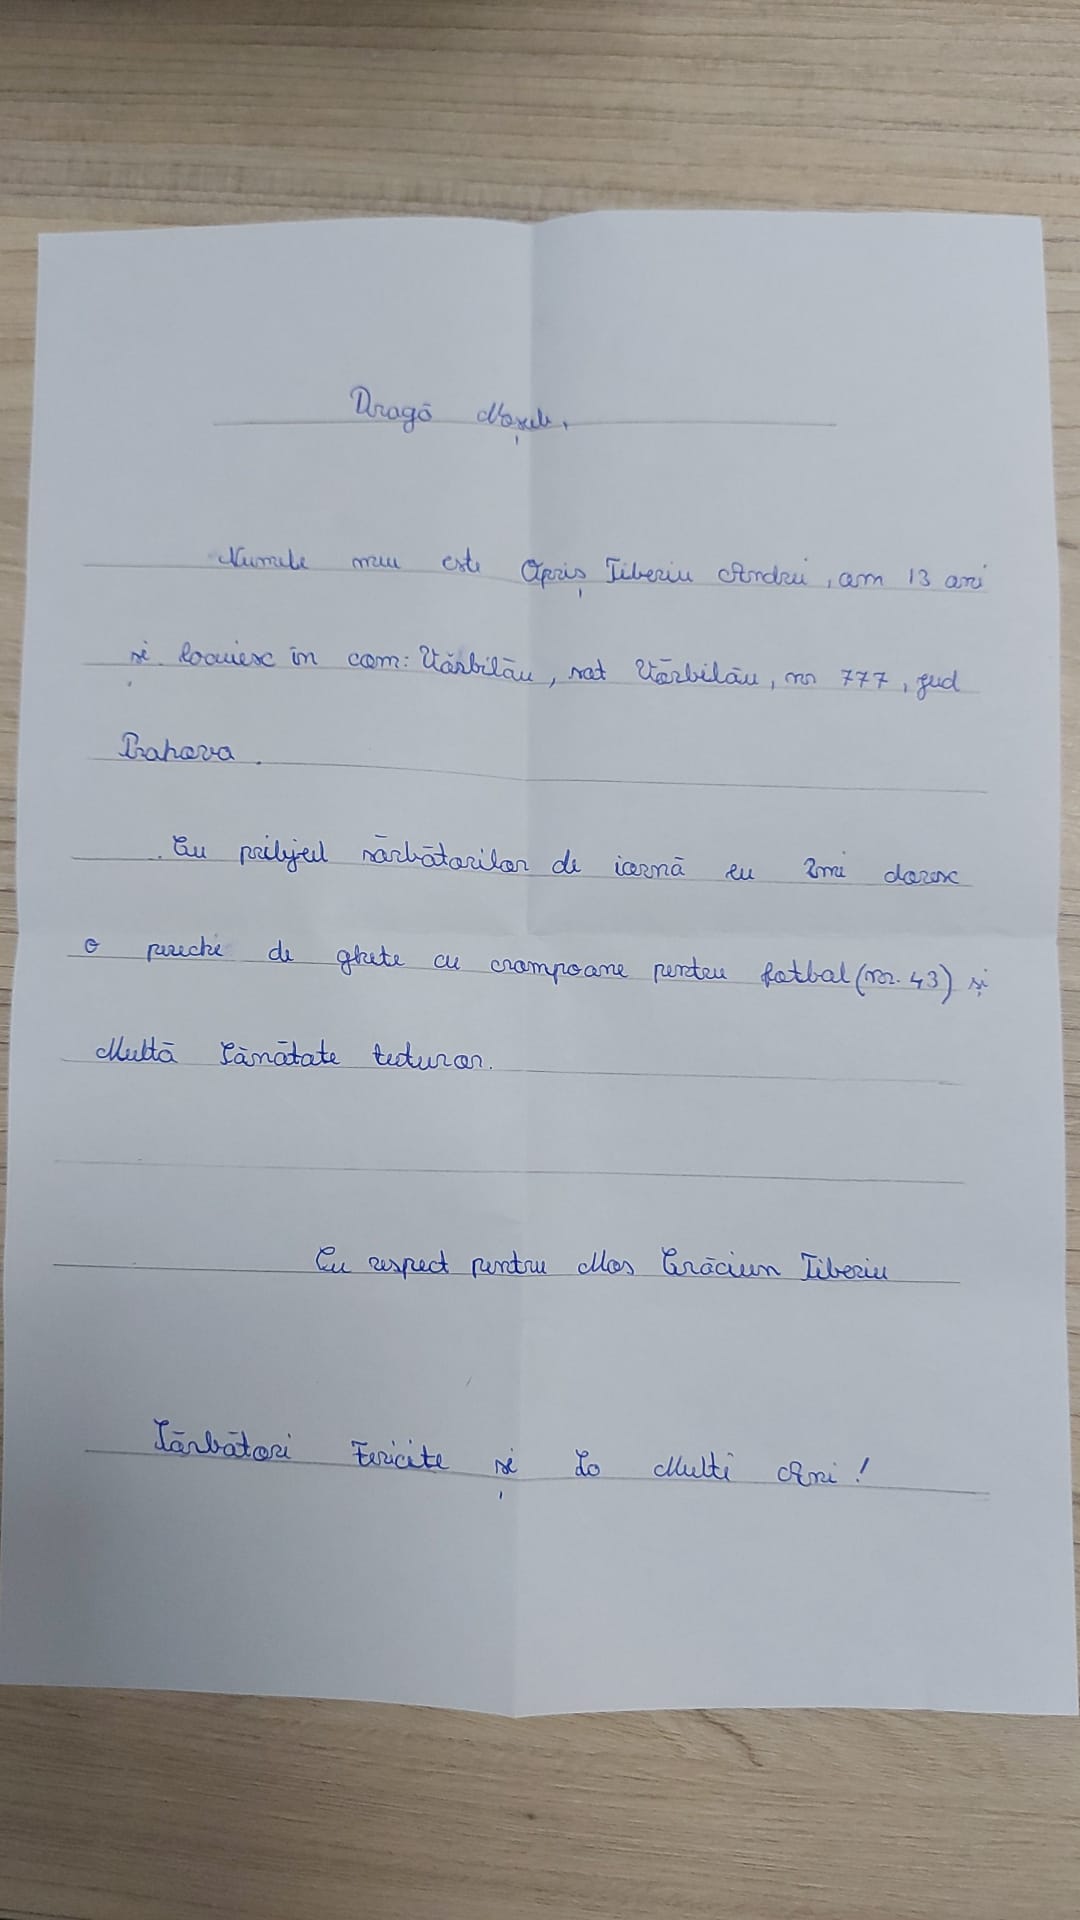 Dragă Moșule,
Numele meu este Opriș Tiberiu Andrei, am 13 ani
și locuiesc în com: Vărbilău, sat Vărbilău, nr 777, jud
Prahova.
Cu prilejul sărbătorilor de iarnă eu îmi doresc
o pereche de ghete cu crampoane pentru fotbal (nr. 43) și
Multă Sănătate tuturor.
Cu respect pentru Mos Crăciun Tiberiu
Sărbători Fericite și La Multi Ani!